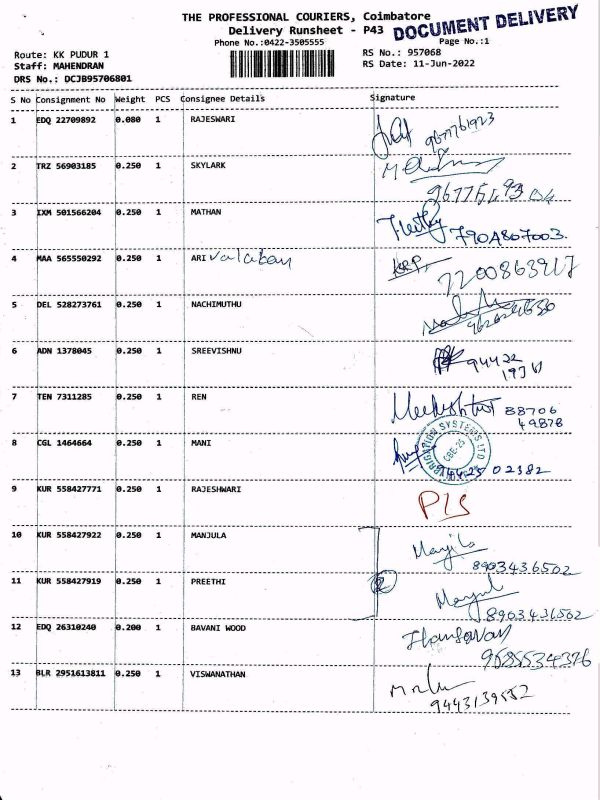 THE PROFESSIONAL COURIERS, Coimbatore
Delivery Runsheet - P43 DOCUMENT DELIVERY
Phone No.:0422-3505555 Page No.:1
Route: KK PUDUR 1 RS No.: 957068
Staff: MAHENDRAN RS Date: 11-Jun-2022
DRS No.: DCJB95706801
S No Consignment No Weight PCS Consignee Details Signature
1 EDQ 22709892 0.080 1 RAJESWARI
9677761923
2 TRZ 56903185 0.250 1 SKYLARK
3 IXM 501566204 0.250 1 MATHAN
4 MAA 565550292 0.250 1 ARI
7200863917
5 DEL 528273761 0.250 1 NACHIMUTHU
6 ADN 1378045 0.250 1 SREEVISHNU
94422
7 TEN 7311285 0.250 1 REN
88706
49878
8 CGL 1464664 0.250 1 MANI
94425 02382
9 KUR 558427771 0.250 1 RAJESHWARI
10 KUR 558427922 0.250 1 MANJULA
8903436502
11 KUR 558427919 0.250 1 PREETHI
8903436502
12 EDQ 26310240 0.200 1 BAVANI WOOD
9585534376
13 BLR 2951613811 0.250 1 VISWANATHAN
9443139552